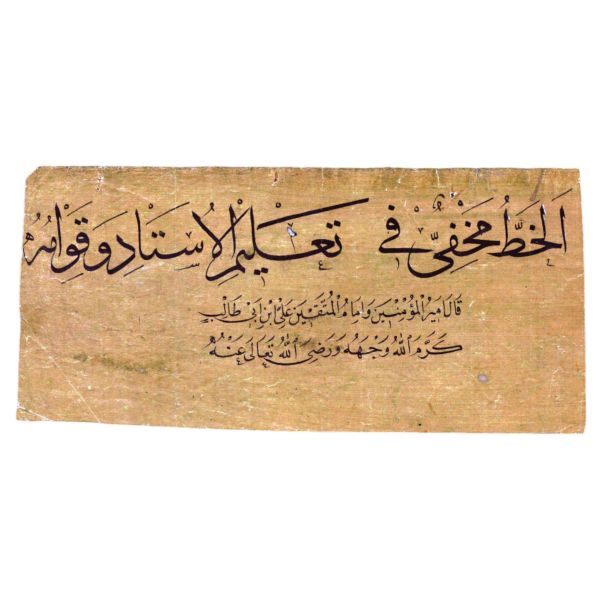 الخَطُّ مَخْفِيٌّ فِي تَعْلِيمِ الْأُسْتَاذِ وَقِوَامُهُ
قَالَ اَمِيرُ الْمُؤْمِنِينَ وَاِمَامُ الْمُتَّقِينَ عَلِيُّ ابْنِ اَبِي طَالِبٍ
كَرَّمَ اللهُ وَجْهَهُ وَرَضِيَ اللهُ تَعَالَى عَنْهُ